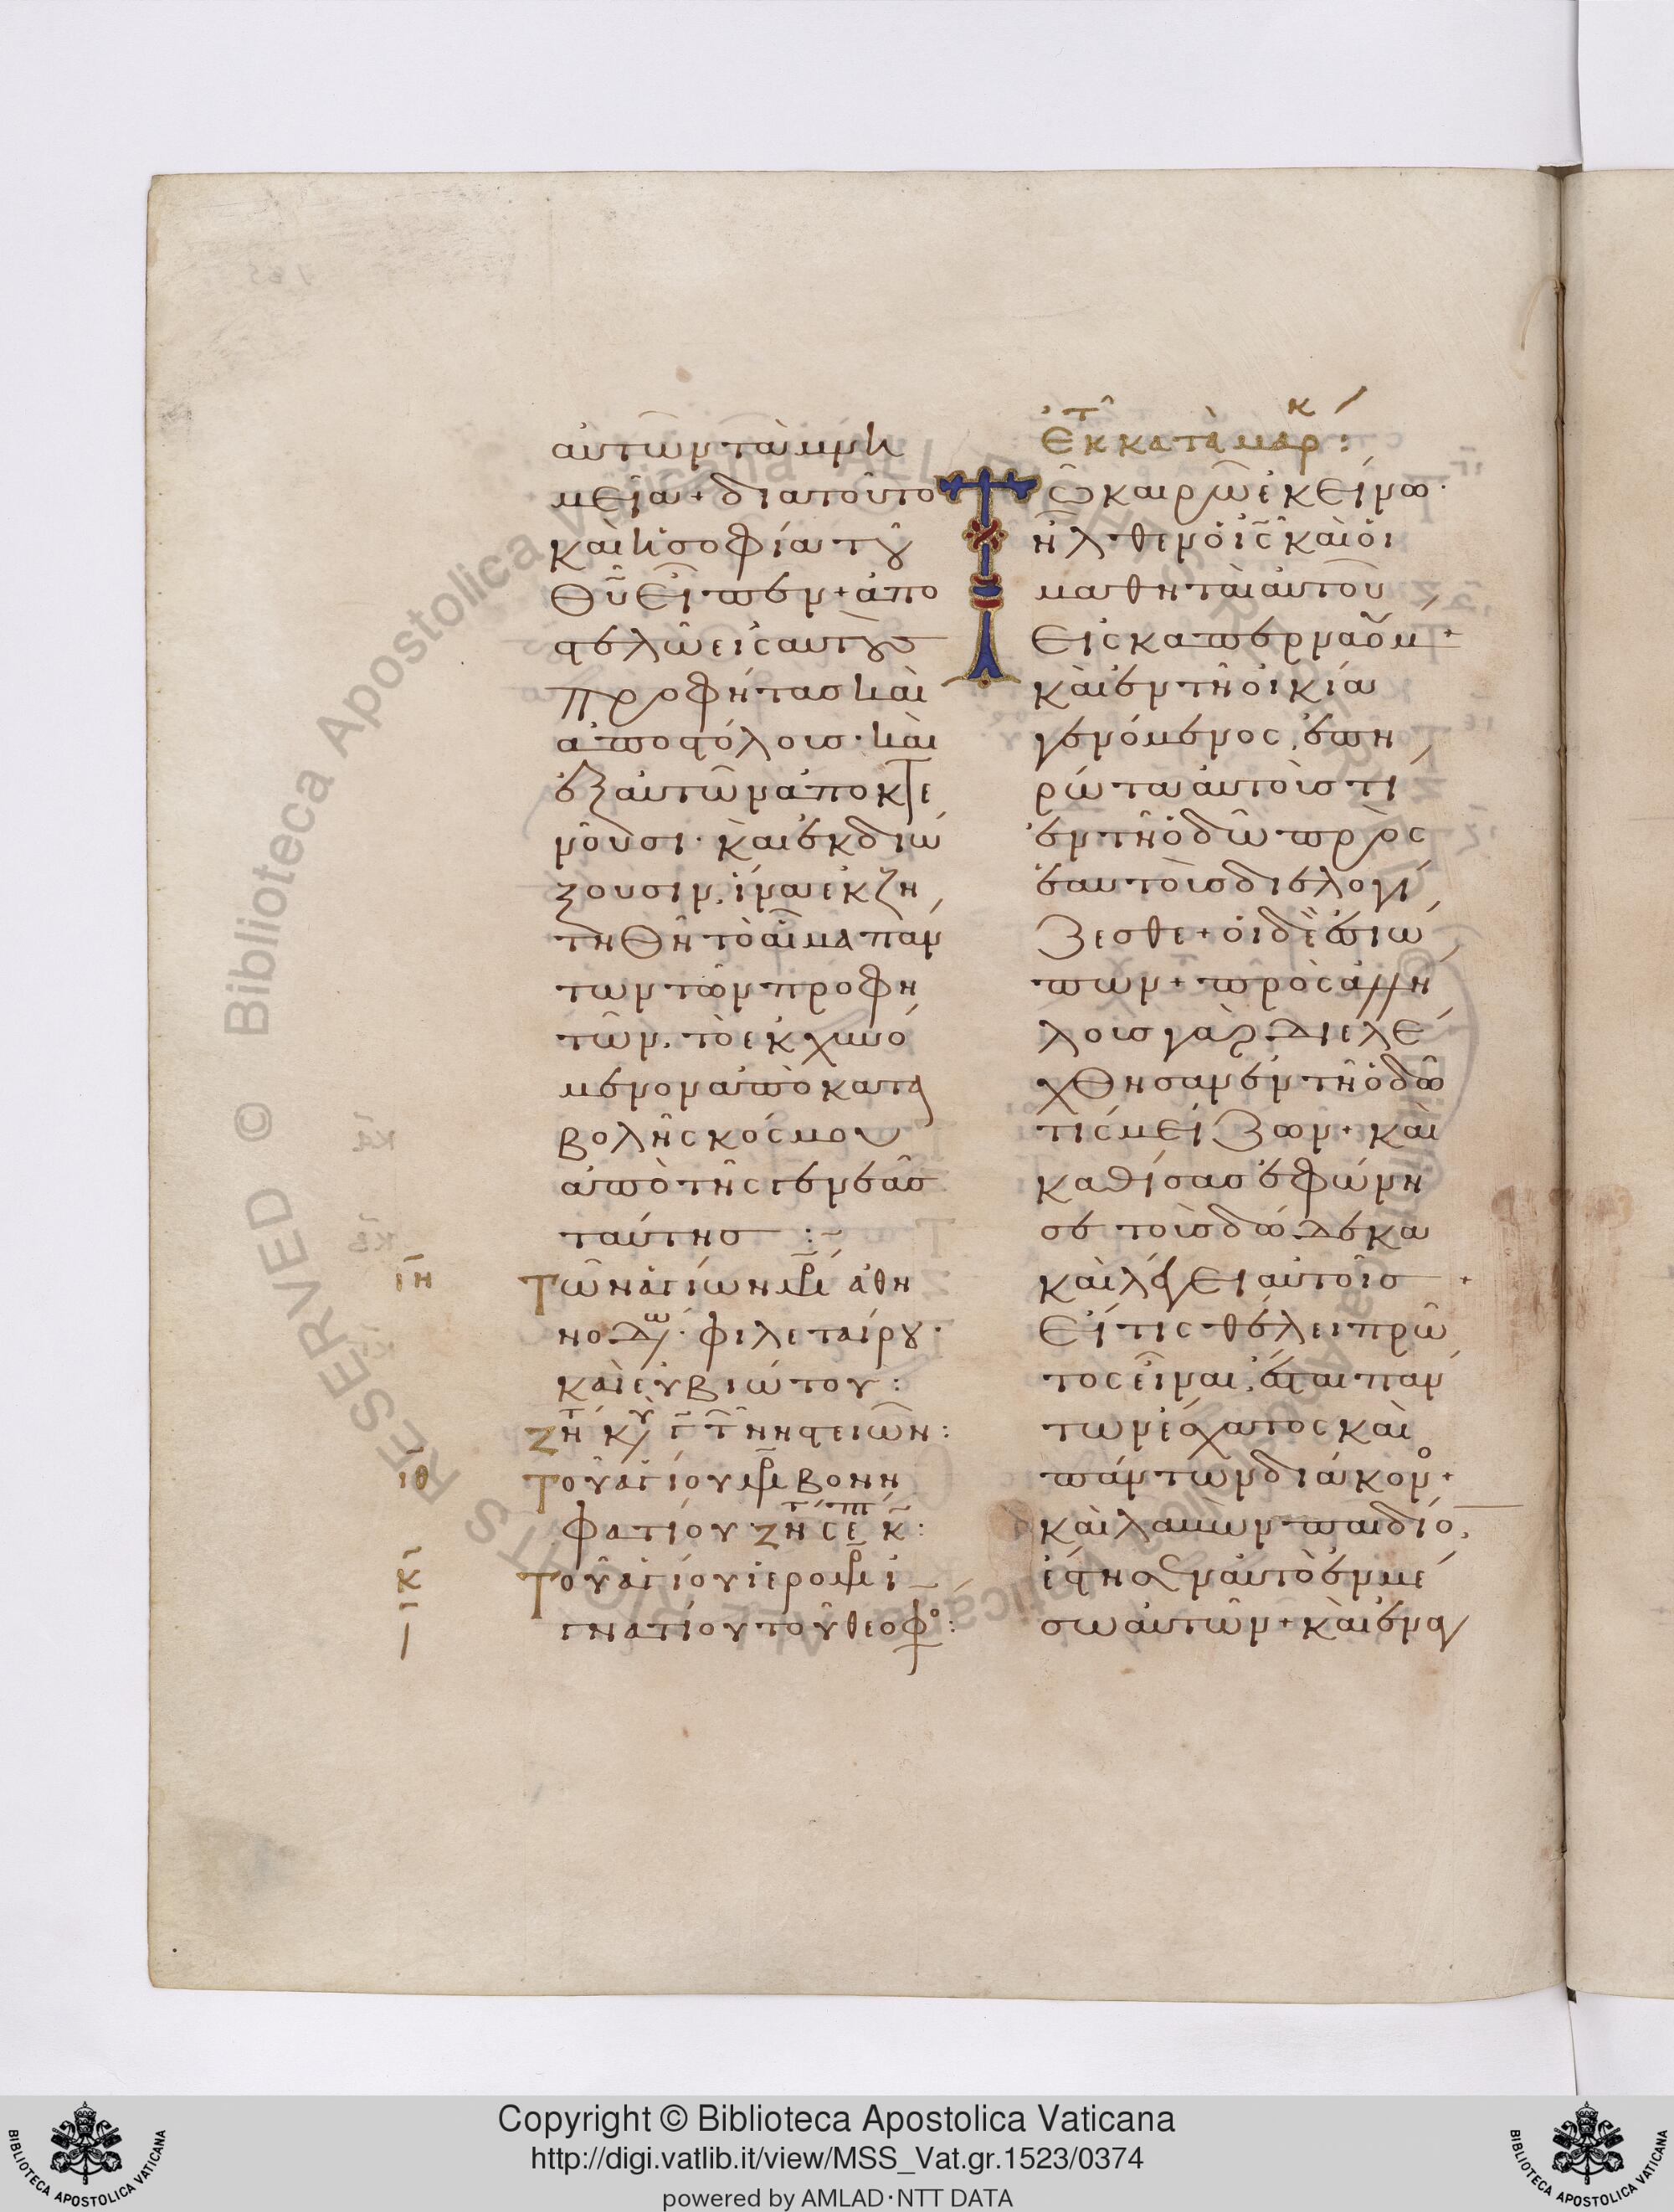 αὐτῶν τὰ μνη
μεῖα + διατοῦτο
καὶ ἡ σοφία τοῦ
Θῦ εἶπεν + ἀπο
στελῶ εἰς αυτοὺσ
προφήτασ καὶ
ἀποστόλουσ · καὶ
ἐξ αὐτῶν ἀποκτε
νοῦσι · καὶ ἐκδιώ
ξουσιν, ἵνα ἐκζη
τηθῆ τὸ αἷμα πάν
των τῶν προφη
τῶν, τὸ ἐκχυνό
μενον ἀπὸ κατα
βολῆς κόσμου
ἀπὸ τῆς γενεᾶσ
ταύτησ :~
ιη Τῶν ἁγίων μρ ἀθη
νοδω · φιλεταίρου ·
καὶ εὐβιώτου :
ζη κυ γ τ νηστειῶν :
ιθ Τοῦ ἁγίου μρ βονη
φατίου ζη σε κ :
κ Τοῦ ἁγίου ἱερομρ ἰ
γνατίου τοῦ θεοφο :
ἐκ τ κατὰ μάρκ :
Τῶ καιρῶ ἐκείνω ·
ἦλθεν ὁ ισ καὶ οἱ
μαθηταὶ αὐτοῦ
εἰς καπερναοῦμ +
καὶ ἐν τῆ οἰκία
γενόμενος, ἐπη
ρώτα αὐτοὺσ τί
ἐν τῆ ὁδῶ πρὸς
ἑαυτοὺσ διελογί
ζεσθε + οἱ δὲ ἐσιώ
πων + πρὸς ἀλλή
λουσ γὰρ διελέ
χθησαν ἐν τῆ ὁδῶ
τίς μείζων + καὶ
καθίσασ ἐφώνη
σε τοὺσ δώδεκα
καὶ λέγει αὐτοῖσ +
Εἴ τις θέλει πρῶ
τος εἶναι, ἔσται πάν
των ἔσχατος καὶ
πάντων διάκονο +
καὶ λαβὼν παιδίο,
ἔστησεν αὐτὸ ἐν μέ
σω αὐτῶν + καὶ ἐναγ
Copyright © Biblioteca Apostolica Vaticana
http://digi.vatlib.it/view/MSS_Vat.gr.1523/0374
powered by AMLAD·NTT DATA